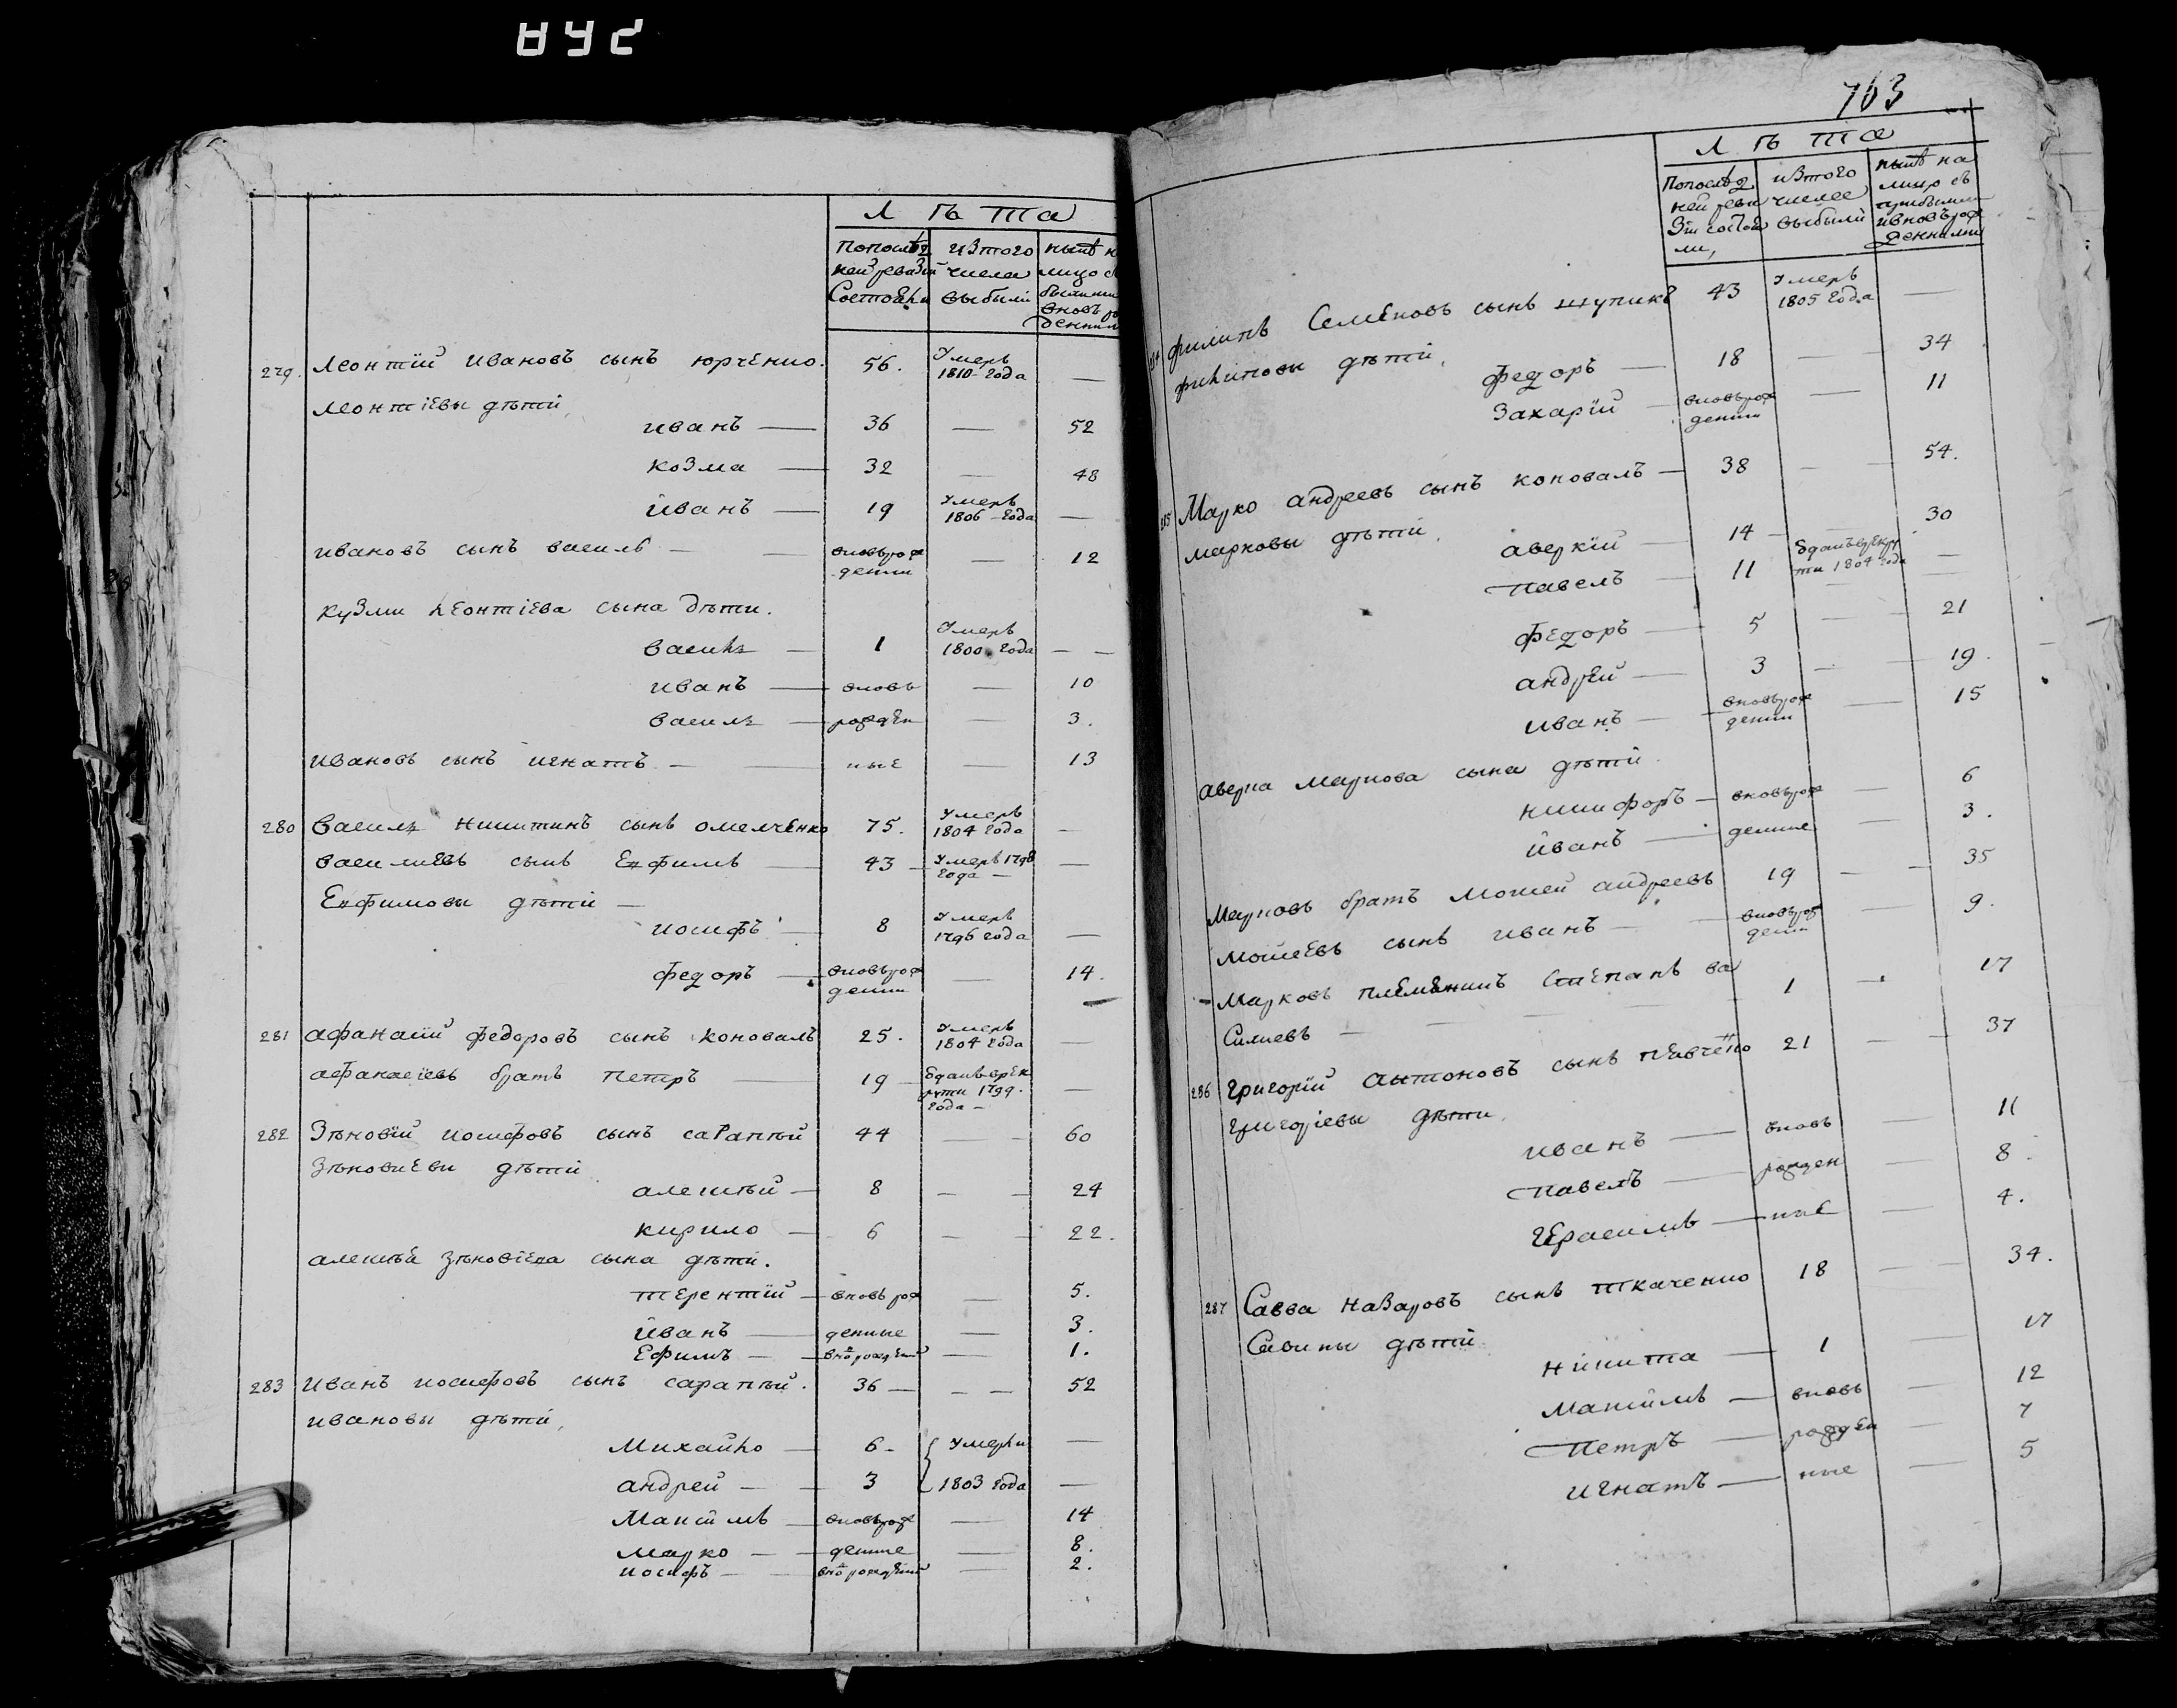 Лѣта
Попослѣд ней ревизiи Состояли
изтого числа выбыли
нынѣ н лицо съ
вновь р
279. Леонтiй Ивановъ сынъ Юрченко. 56. Умеръ 1810 года —
Леонтiевы дѣти,
Иванъ — 36 — 52
Козма — 32 — 48
Иванъ — 19 Умеръ 1806 года —
Ивановъ сынъ Василь — вновьрож денни — 12
Кузми Леонтiева сына дѣти.
Василь — 1 Умеръ 1800 года — —
Иванъ — вновь — 10
Василь — рожден — 3.
Ивановъ сынъ Игнатъ — ные — 13
280 Василь Никитинъ сынъ Омелченко 75. Умеръ 1804 года —
Василиевъ сынъ Евфимъ — 43 — Умеръ 1798 года — —
Евфимовы дѣти —
Иосифъ — 8 Умеръ 1796 года —
Федоръ — вновьрож денни — 14.
281 Афанасiй Федоровъ сынъ Коновалъ 25. Умеръ 1804 года —
Афанасiевъ братъ Петръ — 19 — Зданъ врек рути 1799. года — —
282 Зѣновiй Иосифовъ сынъ Сарапѣй 44 — — 60
Зѣновиеви дѣти
Алексѣй — 8 — — 24
Кирило — 6 — — 22.
Алексѣя Зѣновiева сына дѣти.
Терентiй — вновь рож — 5.
Иванъ — денные — 3.
Ефимъ — — 1.
283 Иванъ Иосифовъ сынъ Сарапѣй. 36 — — — 52
Ивановы дѣти,
Михайло — 6 — Умерли —
Андрей — — 3 1803 года —
Максимъ — вновьрож — 14
Марко — — денные — 8.
Иосифъ — — — 2.
763
Лѣта
Попослѣд ней реви зiи состоя ли,
изтого числа выбыли
нынѣ на лицо съ прибылими ивновьрож денними
Филипъ Семеновъ сынъ Щупикъ 43 Умеръ 1805 года —
Филиповы дѣти,
Федоръ — 18 — 34
Захарiй — вновьрож денни — 11
285 Марко Андреевъ сынъ Коновалъ — 38 — — 54.
Марковы дѣти,
Аверкiй — 14 — — 30
Павелъ — 11 Зданъврекру ти 1804 года —
Федоръ — 5 — — 21
Андрей — 3 — — 19.
Иванъ — вновьрож денни — 15
Аверка Маркова сына дѣти
Никифоръ — вновьрож — 6
Иванъ — денные — 3.
Марковъ братъ Мойсей Андреевъ 19 — — 35
Мойсеевъ сынъ Иванъ — вновьрож денни — 9.
Марковъ племенникъ Степанъ Ва
Силиевъ — 1 — 17
286 Григорiй Антоновъ сынъ Певченко 21 — — 37
Григорiевы дѣти,
Иванъ — вновь — 11
Павелъ — рожден — 8.
Герасимъ — ные — 4.
287 Савва Назаровъ сынъ Ткаченко 18 — — 34.
Савины дѣти
Никита — 1 — 17
Максимъ — вновь — 12
Петръ — рожден — 7
Игнатъ — ные — 5